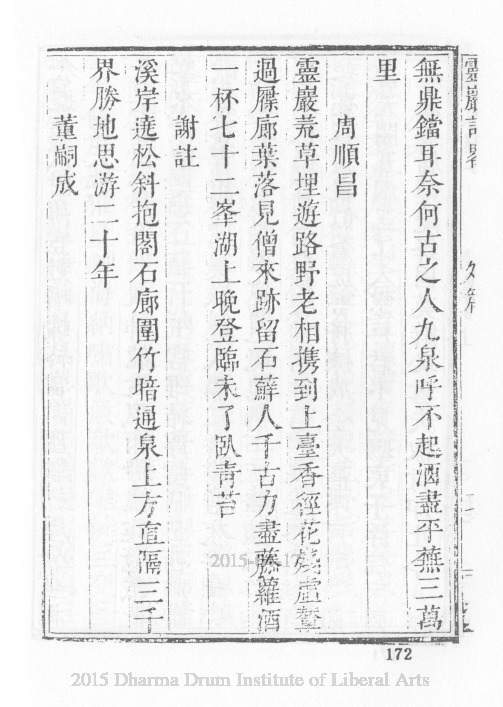 靈巖記畧
外篇
無鼎鐺耳奈何古之人九泉呼不起酒盡平蕪三萬
里
周順昌
靈巖荒草埋遊路野老相携到上臺香徑花殘虛輦
過屧廊葉落見僧來跡留石蘚人千古力盡藤蘿酒
一杯七十二峯湖上晚登臨未了臥青苔
謝註
溪岸遶松斜抱閣石廊圍竹暗通泉上方直隔三千
界勝地思游二十年
董嗣成
172
2015 Dharma Drum Institute of Liberal Arts